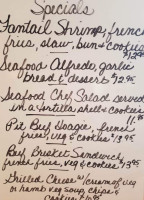 Specials
Fantail Shrimp, french
fries, slaw, bun & cookies
$12.95
Seafood Alfredo, garlic
bread & dessert $12.95
Seafood Chef Salad served
in a tortilla shell & cookies
11.95
Pit Beef Hoagie, french
fries, veg & cookies $13.95
Beef Brisket Sandwich,
french fries, veg & cookies $13.95
Grilled Cheese w/cream of veg
or hamb veg soup, chips &
cookies